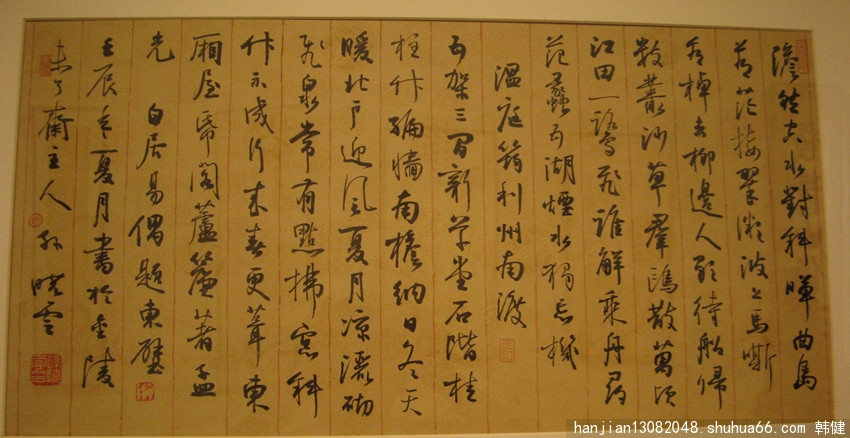 澹然空水對斜暉曲島
蒼茫接翠微波上馬嘶
看棹去柳邊人歇待船歸
數叢沙草羣鷗散萬頃
江田一鷺飛誰解乘舟尋
范蠡五湖煙水獨忘機
溫庭筠利州南渡
五架三間新草堂石階桂
柱竹編墻南檐納日冬天
暖北戶迎風夏月凉灑砌
飛泉常有點拂窓斜
竹不成行來春更葺東
廂屋帋閣蘆簾著孟
光 白居易偶題東壁
壬辰之夏月書於金陵
未了齋主人孫曉雲
hanjian13082048.shuhua66.com 韩健